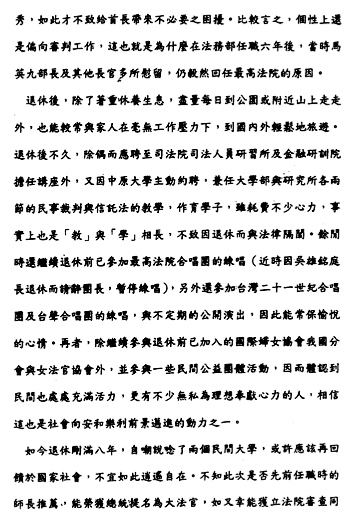 秀，如此才不致給首長帶來不必要之困擾。比較言之，個性上還
是偏向審判工作，這也就是為什麼在法務部任職六年後，當時馬
英九部長及其他長官多所慰留，仍毅然回任最高法院的原因。
退休後，除了著重休養生息，盡量每日到公園或附近山上走走
外，也能較常與家人在毫無工作壓力下，到國內外輕鬆地旅遊。
退休後不久，除偶而應聘至司法院司法人員研習所及金融研訓院
擔任講座外，又因中原大學主動約聘，兼任大學部與研究所各兩
節的民事裁判與信託法的教學，作育學子，雖耗費不少心力，事
實上也是「教」與「學」相長，不致因退休而與法律隔閡。餘閒
時還繼續退休前已參加最高法院合唱團的練唱（近時因吳雄銘庭
長退休而請辭團長，暫停練唱），另外還參加台灣二十一世紀合唱
團及台聲合唱團的練唱，與不定期的公開演出，因此能常保愉悅
的心情。再者，除繼續參與退休前已加入的國際婦女協會我國分
會與女法官協會外，並參與一些民間公益團體活動，因而體認到
民間也處處充滿活力，更有不少無私為理想奉獻心力的人，相信
這也是社會向安和樂利前景邁進的動力之一。
如今退休剛滿八年，自嘲說唸了兩個民間大學，或許應該再回
饋於國家社會，不宜如此逍遙自在。不知此次是否先前任職時的
師長推薦，能榮獲總統提名為大法官，如又幸能獲立法院審查同